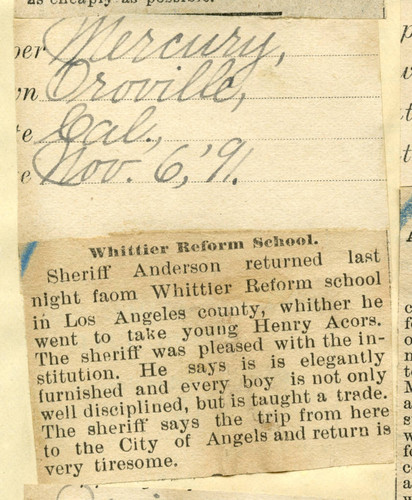 as cheaply as possible.
Mercury,
Oroville,
Cal.,
Nov. 6, '91.
Whittier Reform School.
Sheriff Anderson returned last
night faom Whittier Reform school
in Los Angeles county, whither he
went to take young Henry Acors.
The sheriff was pleased with the in-
stitution. He says is is elegantly
furnished and every boy is not only
well disciplined, but is taught a trade.
The sheriff says the trip from here
to the City of Angels and return is
very tiresome.